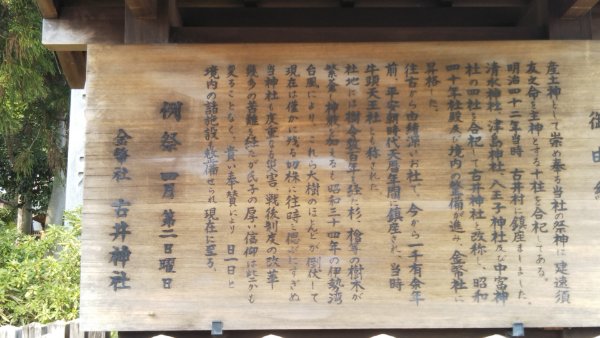 御由緒
産土神として崇め奉る当社の祭神は、建速須
友之命を主神とする十柱を合祀してある。
明治四十二年当時 古井村に鎮座ましました
清水神社、津島神社、八王子神社及び中富神
社の四社を合祀し、古井神社と改称し、昭和
四十年社殿及び境内の整備が進み、金幣社に
昇格した。
往古から由緒深いお社で、今から一千有余年
前、平安朝時代天暦年間に鎮座された。当時
牛頭天王社とも称された。
社地には樹令数百年を経た杉、桧等の樹木が
繁茂し神域を知るも昭和三十四年の伊勢湾
台風により、これら大樹のほとんどが倒伏して
現在は僅かに残る切株に往時を偲ぶにすぎぬ
当神社も度重なる災害、戦後制度の改革
幾多の苦難を経ながら氏子の厚い信仰は些かも
変ることなく、貴い奉賛により 日一日と
境内の諸施設も整備せられ現在に至る。
例祭 一月 第二日曜日
金幣社 古井神社